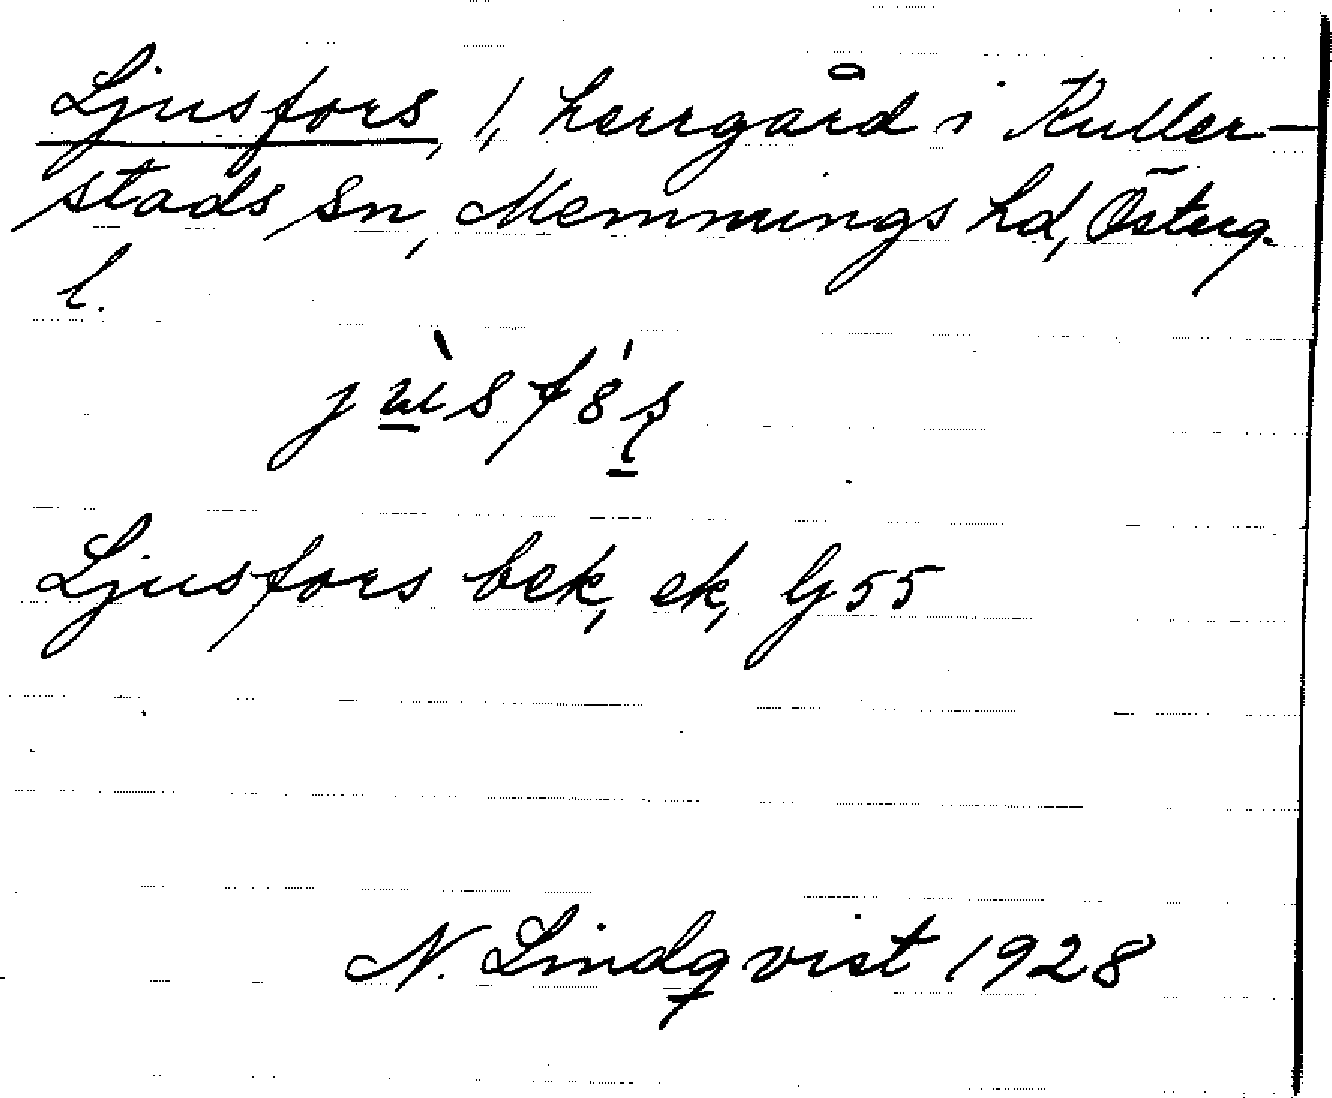 Ljusfors, 1, herrgård i Kuller-
stads sn, Memmings hd, Österg.
l.
Ljusfors bek, ek, Gj 55
N. Lindqvist 1928